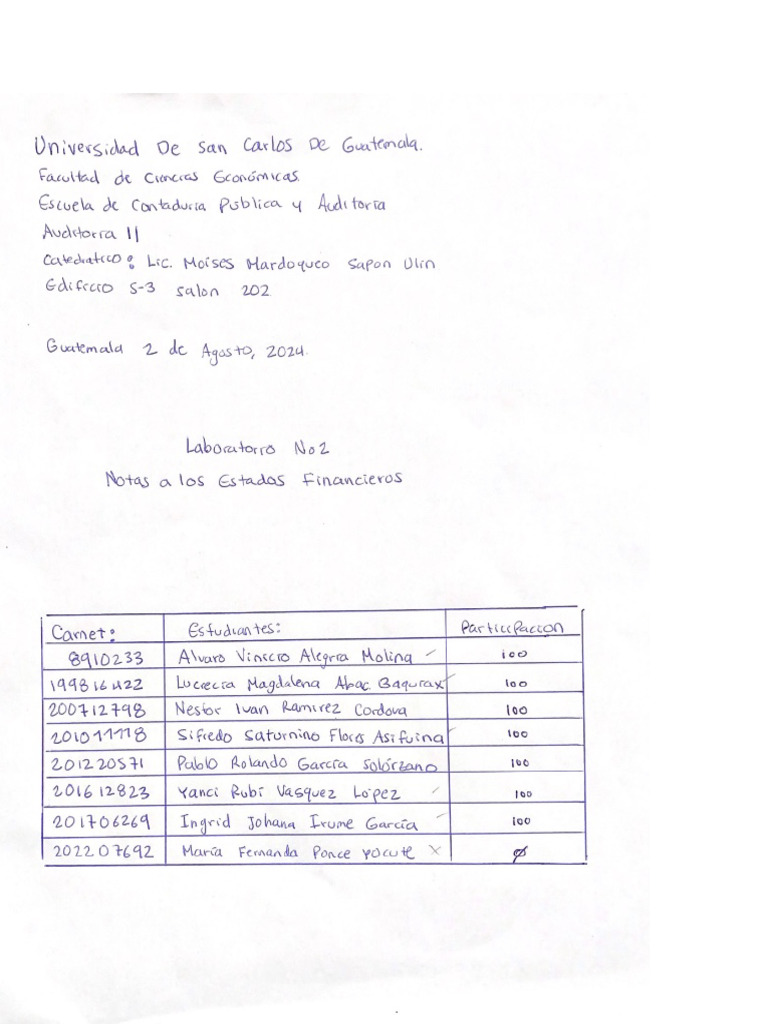 Universidad De San Carlos De Guatemala.
Facultad de Ciencias Económicas.
Escuela de Contaduria Publica y Auditoria
Auditoria II
Catedratico: Lic. Moises Mardoqueo Sapon Ulin
Edificio S-3 salon 202
Guatemala 2 de Agosto, 2024.
Laboratorio No2
Notas a los Estados Financieros
Carnet: Estudiantes: Participacion
8910233 Alvaro Vinicio Alegria Molina ✓ 100
199816422 Lucrecia Magdalena Abac Baquiax ✓ 100
200712798 Nestor Ivan Ramirez Cordova 100
201011118 Sifredo Saturnino Flores Asifuina ✓ 100
201220571 Pablo Rolando García Solórzano 100
201612823 Yanci Rubí Vasquez López ✓ 100
201706269 Ingrid Johana Irume García ✓ 100
202207692 María Fernanda Ponce Yocute X Ø